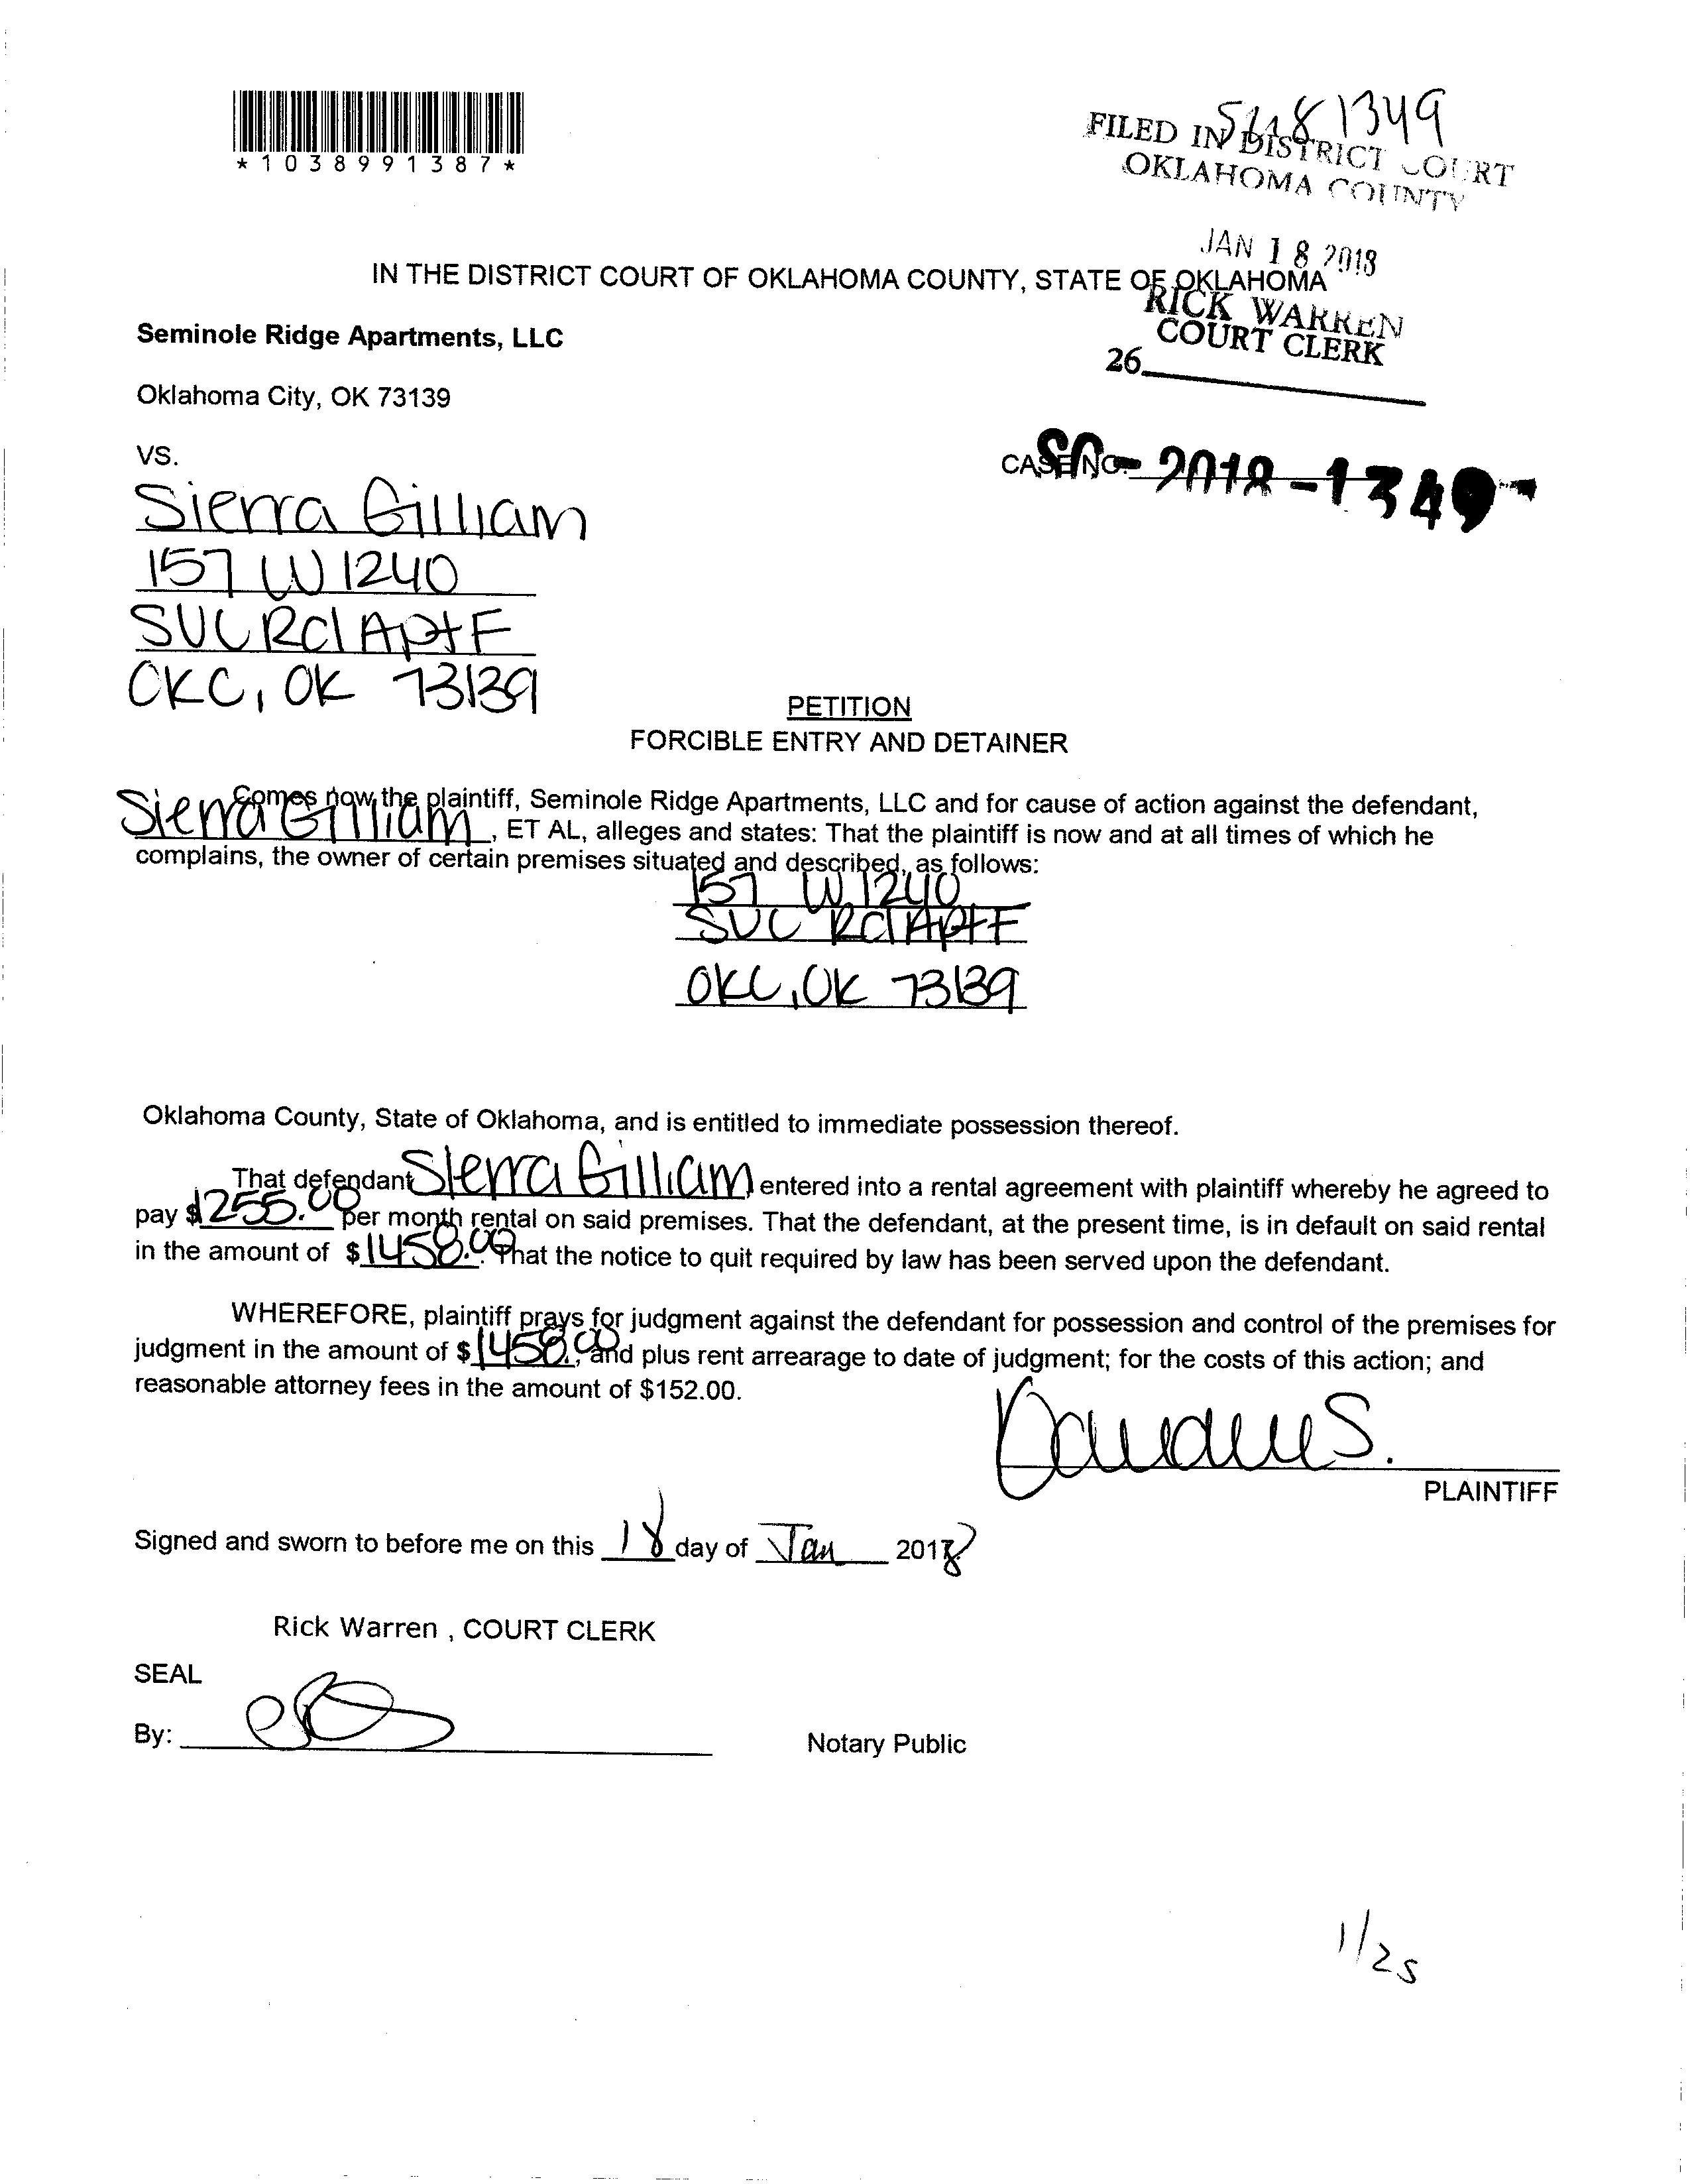 *1038991387*
SC181349
FILED IN DISTRICT COURT
OKLAHOMA COUNTY
JAN 18 2018
RICK WARREN
COURT CLERK
26
IN THE DISTRICT COURT OF OKLAHOMA COUNTY, STATE OF OKLAHOMA
Seminole Ridge Apartments, LLC
Oklahoma City, OK 73139
VS.
CASE NO. SC-2018-1349
Sierra Gilliam
157 W 1240
SVC Rd Apt F
OKC, OK 73139
PETITION
FORCIBLE ENTRY AND DETAINER
Comes now the plaintiff, Seminole Ridge Apartments, LLC and for cause of action against the defendant,
Sierra Gilliam, ET AL, alleges and states: That the plaintiff is now and at all times of which he
complains, the owner of certain premises situated and described, as follows:
157 W 1240
SVC Rd Apt F
OKC, OK 73139
Oklahoma County, State of Oklahoma, and is entitled to immediate possession thereof.
That defendant Sierra Gilliam entered into a rental agreement with plaintiff whereby he agreed to
pay $1255.00 per month rental on said premises. That the defendant, at the present time, is in default on said rental
in the amount of $1458.00. That the notice to quit required by law has been served upon the defendant.
WHEREFORE, plaintiff prays for judgment against the defendant for possession and control of the premises for
judgment in the amount of $1458.00, and plus rent arrearage to date of judgment; for the costs of this action; and
reasonable attorney fees in the amount of $152.00.
PLAINTIFF
Signed and sworn to before me on this 18 day of Jan 2018
Rick Warren , COURT CLERK
SEAL
By:
Notary Public
1/25